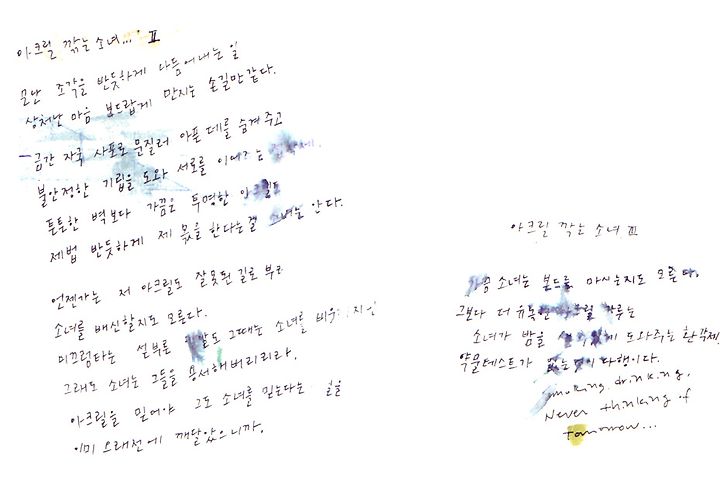 아크릴 깎는 소녀... Ⅱ
모난 조각을 반듯하게 다듬어내는 일
상처난 마음 보드랍게 만지는 손길만 같다.
금간 자국 사포로 문질러 아픈 데를 숨겨주고
불안정한 기립을 도와 서로를 이어주는 접착제.
튼튼한 벽보다 가끔은 투명한 아크릴도
제법 반듯하게 제 몫을 한다는걸 그녀는 안다.
언젠가는 저 아크릴도 잘못된 길로
소녀를 배신할지도 모른다.
미끄럼타는 설부른 그때는 소녀를
그래도 소녀는 그들을 용서해버리리라.
아크릴을 믿어야 그도 소녀를 믿는다는
이미 오래전에 깨달았으니까.
아크릴 깎는 소녀 Ⅲ
가끔 소녀는 본드를 마시는지도 모른다.
그보다 더 유독한 아크릴 가루는
소녀가 밤을 도와주는 환각제.
약물테스트가 없는 것이 다행이다.
smoking. drinking.
Never thinking of
tomorrow...